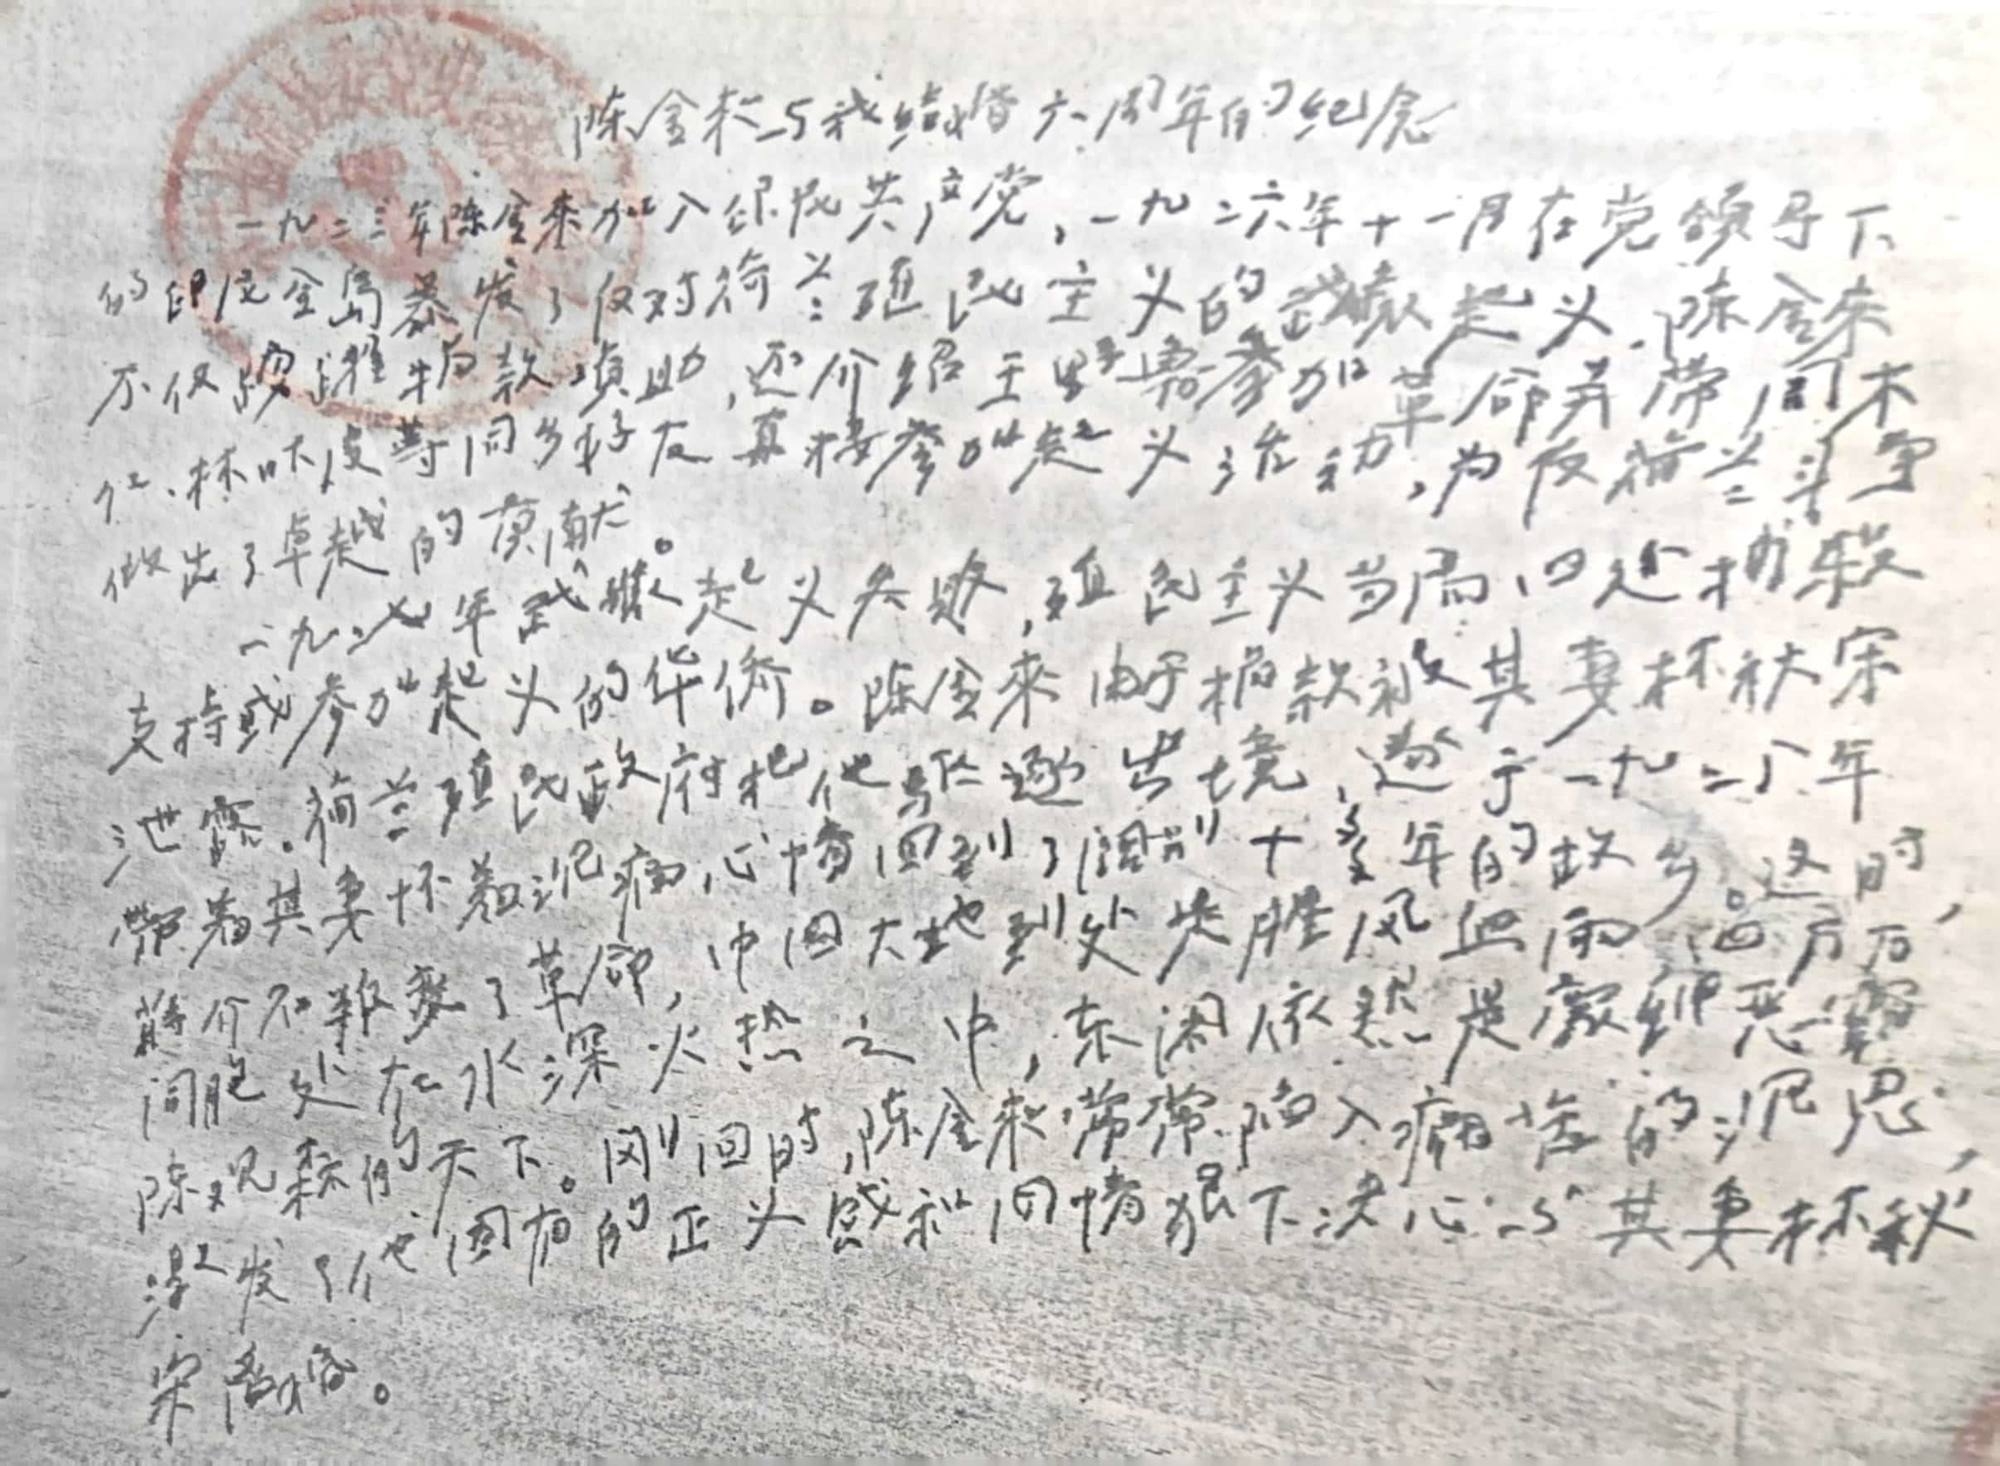 陈金来与我结婚六周年的纪念
一九二三年陈金来加入印尼共产党，一九二六年十一月在党领导下
的印尼全岛暴发了反对荷兰殖民主义的武装起义，陈金来
不仅踊跃捐款资助，还介绍王 参加革命并带同木
仁、林味皮等同乡好友直接参加起义活动，为反荷兰斗争
做出了卓越的贡献。
一九二七年武装起义失败，殖民主义当局四处捕杀
支持或参加起义的华侨。陈金来由于捐款被其妻林秋宋
泄露，荷兰殖民政府把他驱逐出境，遂于一九二八年
带着其妻怀着沉痛心情回到了阔别十多年的故乡。这时，
蒋介石叛变了革命，中国大地到处是腥风血雨，四万万
同胞处在水深火热之中，东阁依然是豪绅恶霸
陈观森们的天下。刚回时，陈金来常常陷入痛苦的沉思，
激发了他固有的正义感和同情狠下决心与其妻林秋
宋离婚。